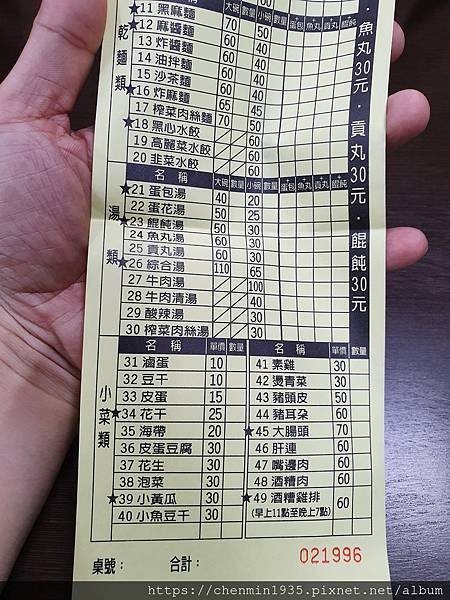 大碗 數量 小碗 數量 +蛋包 +魚丸 +貢丸 +餛飩
乾麵類
★11 黑麻麵 70 50
★12 麻醬麵 60 40
13 炸醬麵 60 40
14 油拌麵 60 40
15 沙茶麵 60 40
★16 炸麻麵 65 45
17 榨菜肉絲麵 70 50
★18 黑心水餃 60
19 高麗菜水餃 60
20 韭菜水餃 60
湯類
名稱 大碗 數量 小碗 數量 +蛋包 +魚丸 +貢丸 +餛飩
★21 蛋包湯 40 20
22 蛋花湯 50 25
★23 餛飩湯 50 30
24 魚丸湯 60 30
25 貢丸湯 60 30
★26 綜合湯 110 65
27 牛肉湯 100
28 牛肉清湯 40
29 酸辣湯 30
30 榨菜肉絲湯 30
·魚丸30元·貢丸30元·餛飩30元
小菜類
名稱 單價 數量
31 滷蛋 10
32 豆干 10
33 皮蛋 15
★34 花干 25
35 海帶 20
36 皮蛋豆腐 30
37 花生 30
38 泡菜 30
★39 小黃瓜 30
40 小魚豆干 30
名稱 單價 數量
41 素雞 30
42 燙青菜 30
43 豬頭皮 50
44 豬耳朵 60
★45 大腸頭 70
46 肝連 60
47 嘴邊肉 60
48 酒糟肉 60
★49 酒糟雞排 60
(早上11點至晚上7點)
桌號: 合計: 021996
https://chenmin1935.pixnet.net/album